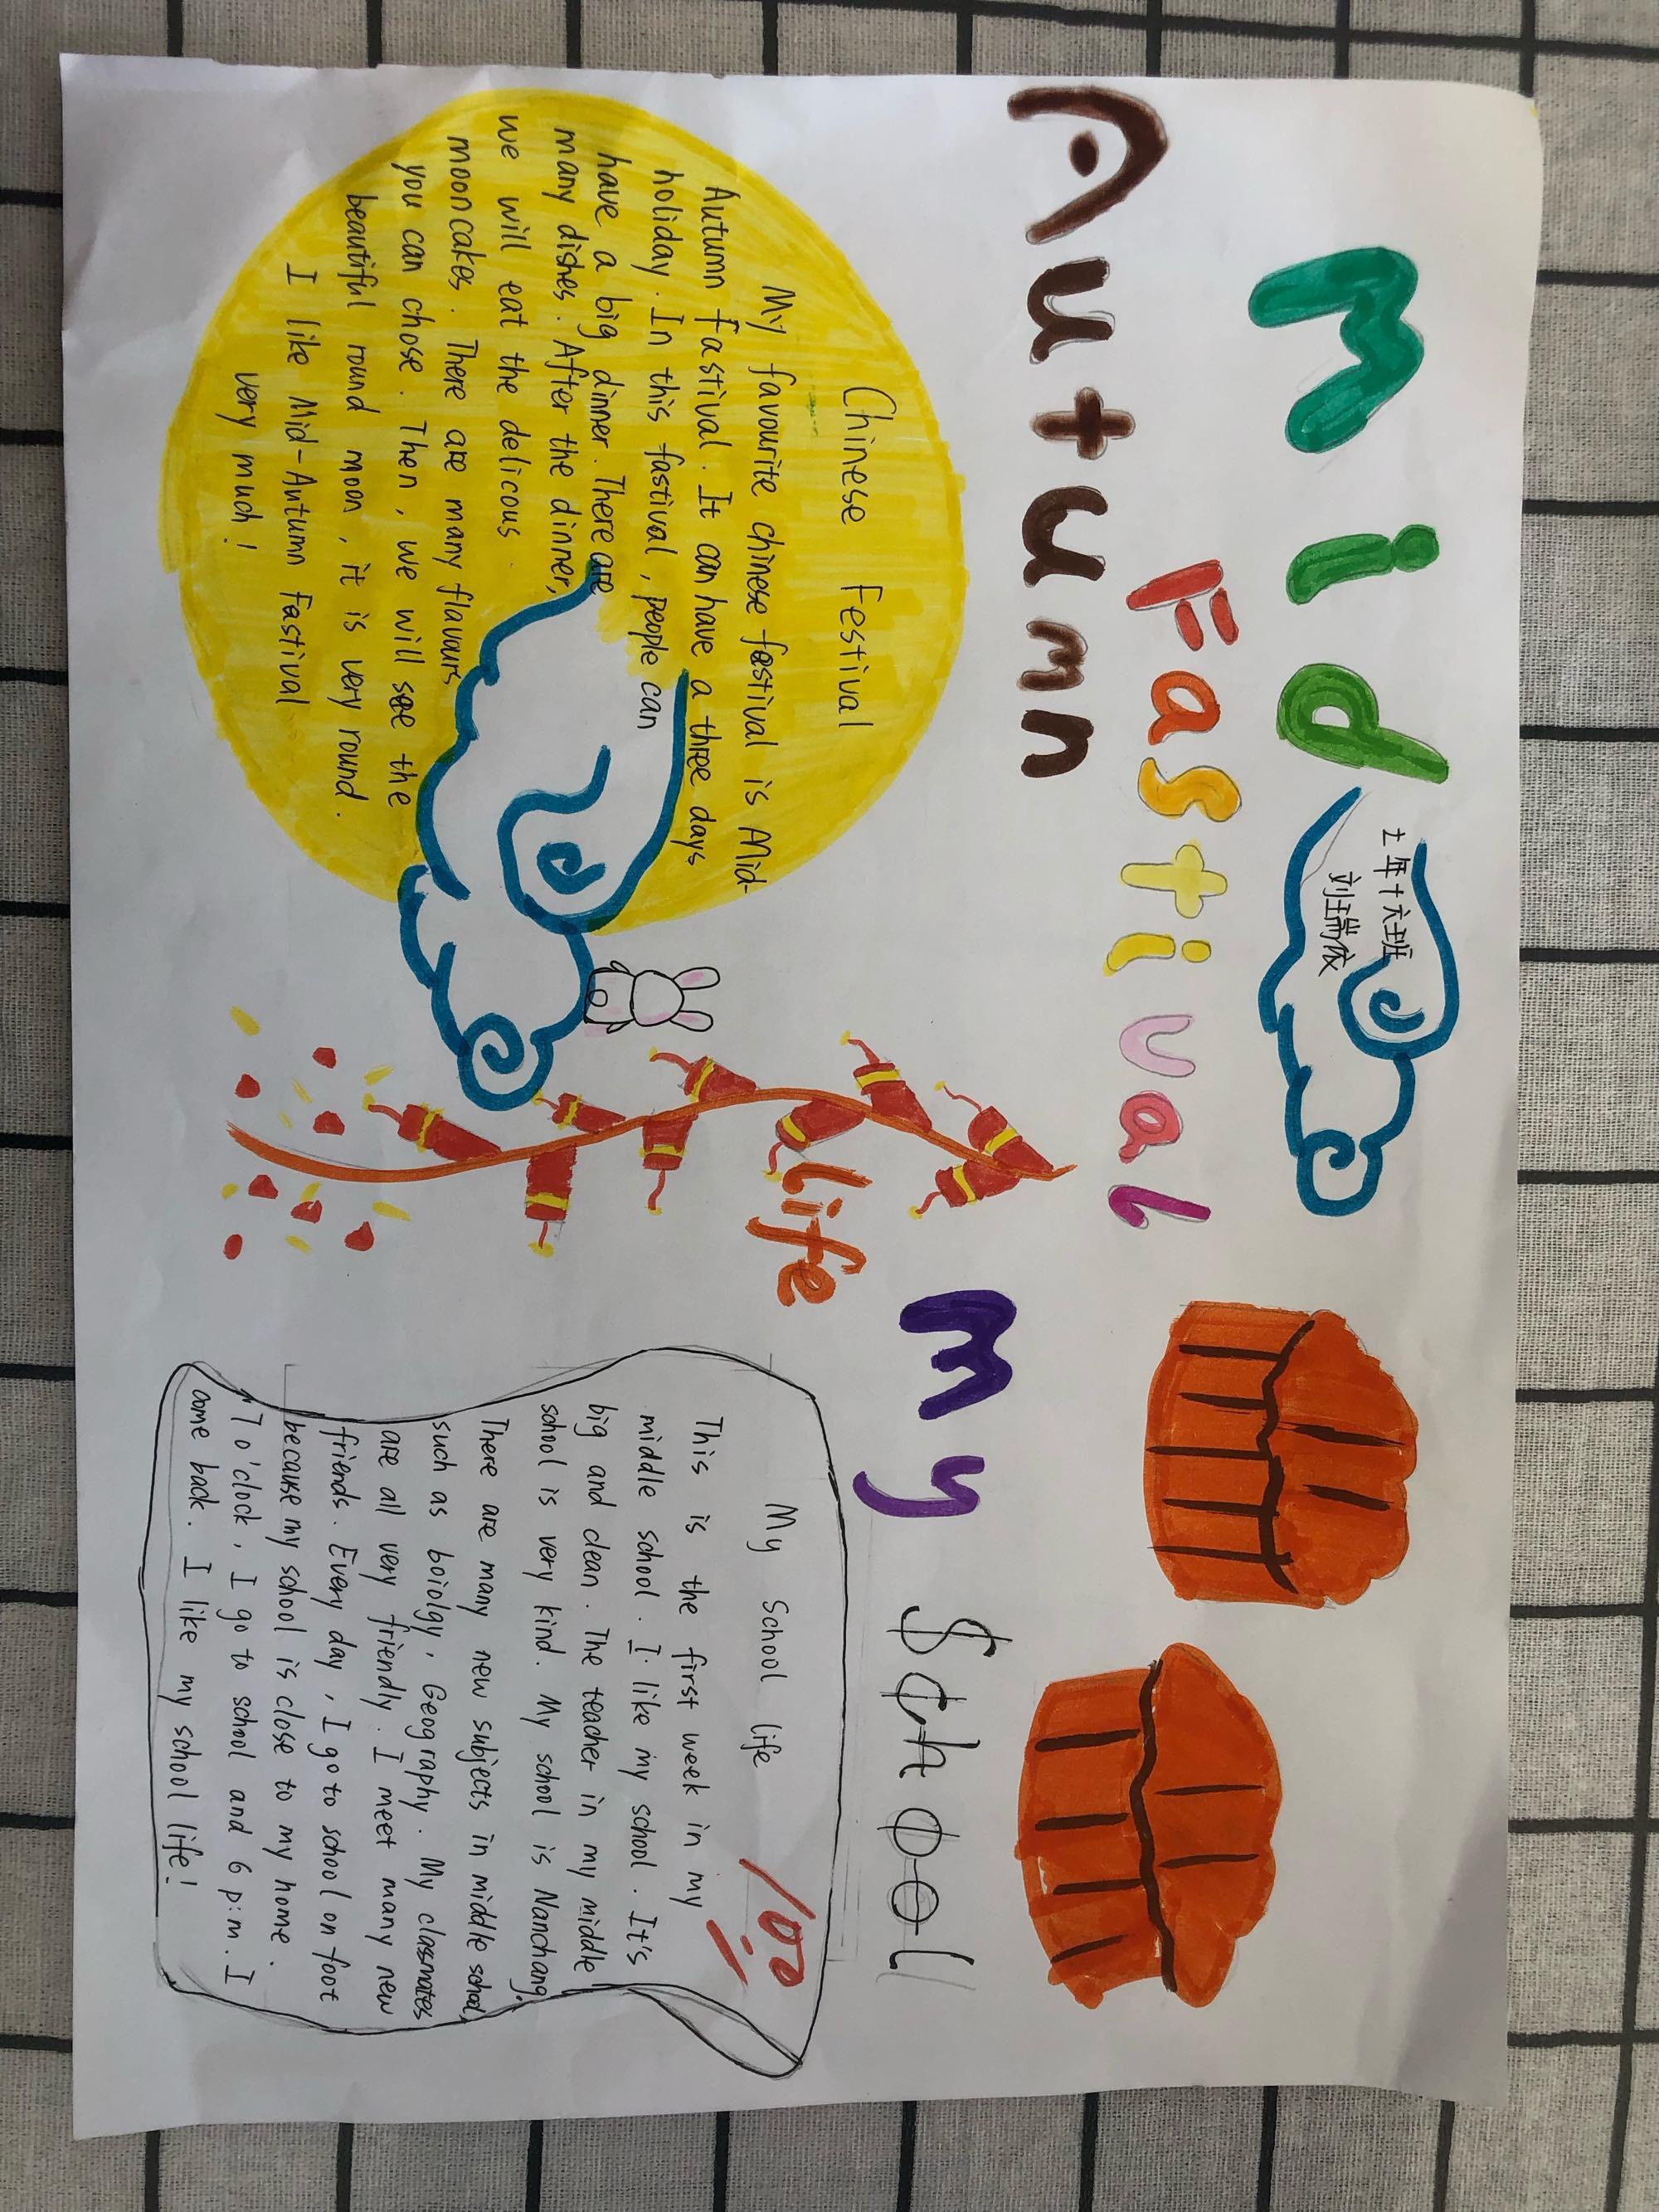 Mid
Autumn
Fastival
七年十六班
刘瑞
Chinese Festival
My favourite chinese fastival is Mid-
Autumn fastival. It can have a three days
holiday. In this fastival, people can
have a big dinner. There are
many dishes. After the dinner,
we will eat the delicous
mooncakes. There are many flavours
you can chose. Then, we will see the
beautiful round moon, it is very round.
I like Mid-Autumn Fastival
very much!
My School
life
My School life
100
This is the first week in my
middle school. I like my school. It's
big and clean. The teacher in my middle
school is very kind. My school is Nanchang.
There are many new subjects in middle school,
such as boiolgy, Geography. My classmates
are all very friendly. I meet many new
friends. Every day, I go to school on foot
because my school is close to my home.
7 o'clock, I go to school and 6 p:m. I
come back. I like my school life!